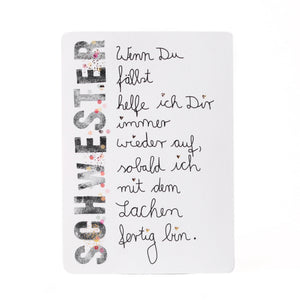 SCHWESTER
Wenn Du
fällst
helfe ich Dir
immer
wieder auf,
sobald ich
mit dem
Lachen
fertig bin.